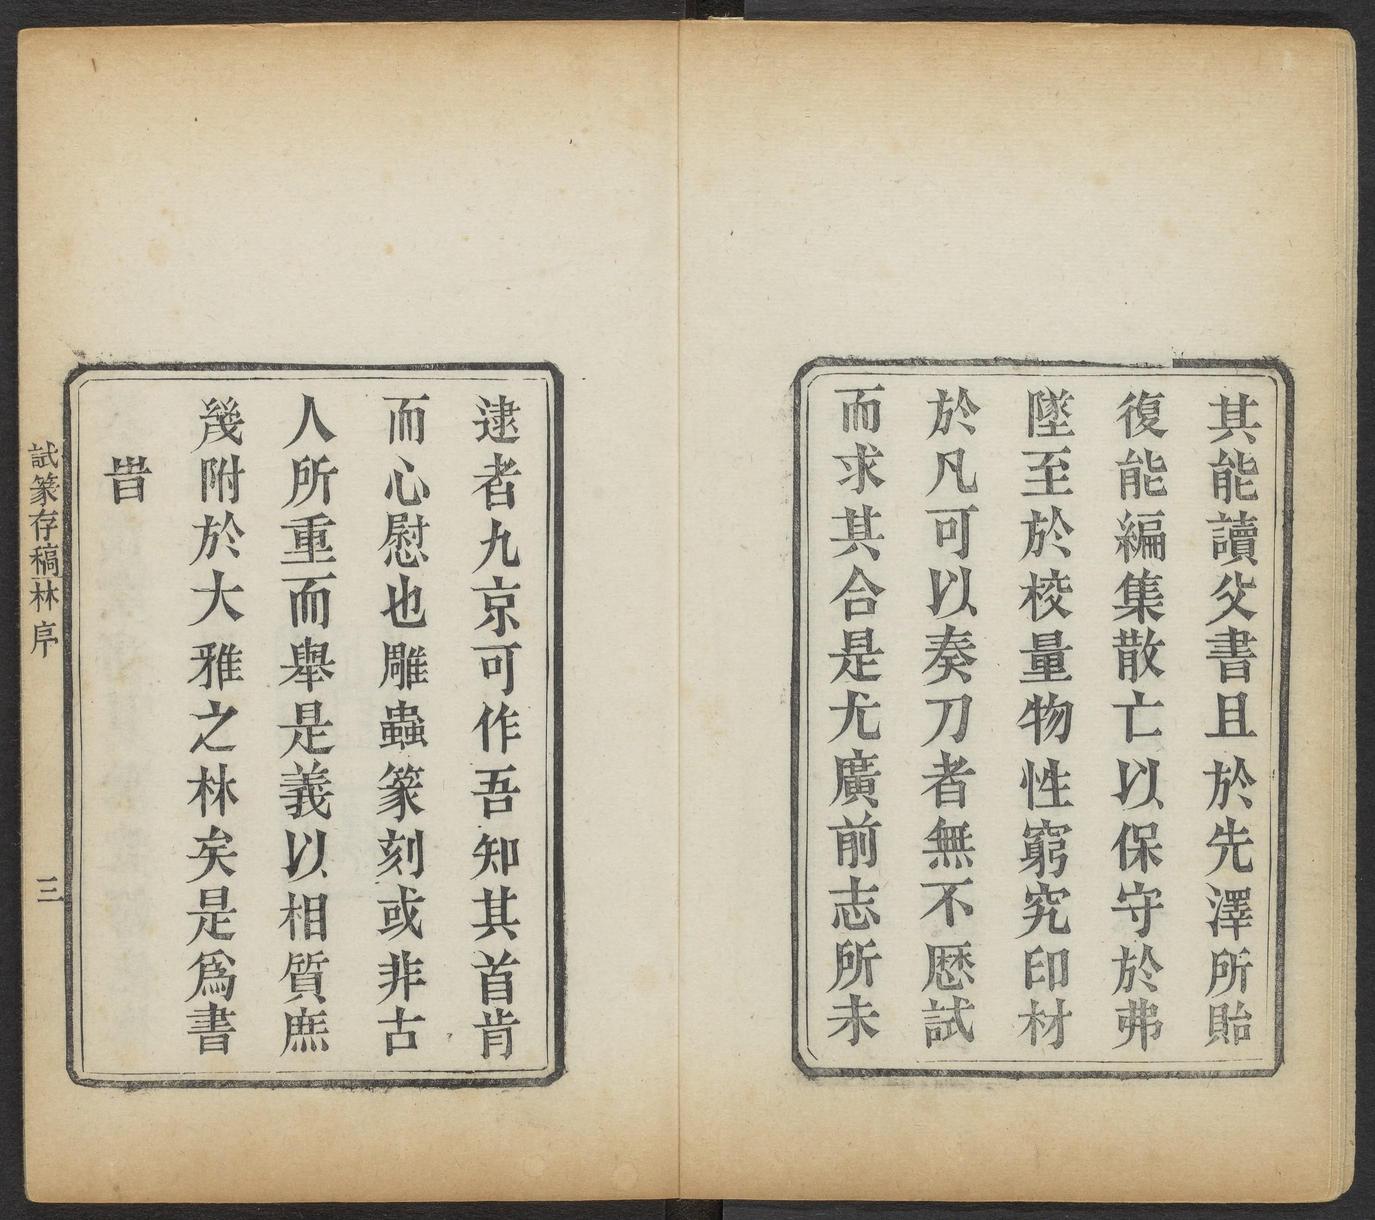 其能讀父書且於先澤所貽
復能編集散亡以保守於弗
墜至於校量物性窮究印材
於凡可以奏刀者無不歷試
而求其合是尤廣前志所未
逮者九京可作吾知其首肯
而心慰也雕蟲篆刻或非古
人所重而舉是義以相質庶
幾附於大雅之林矣是爲書
旹
試篆存稿 林序
三